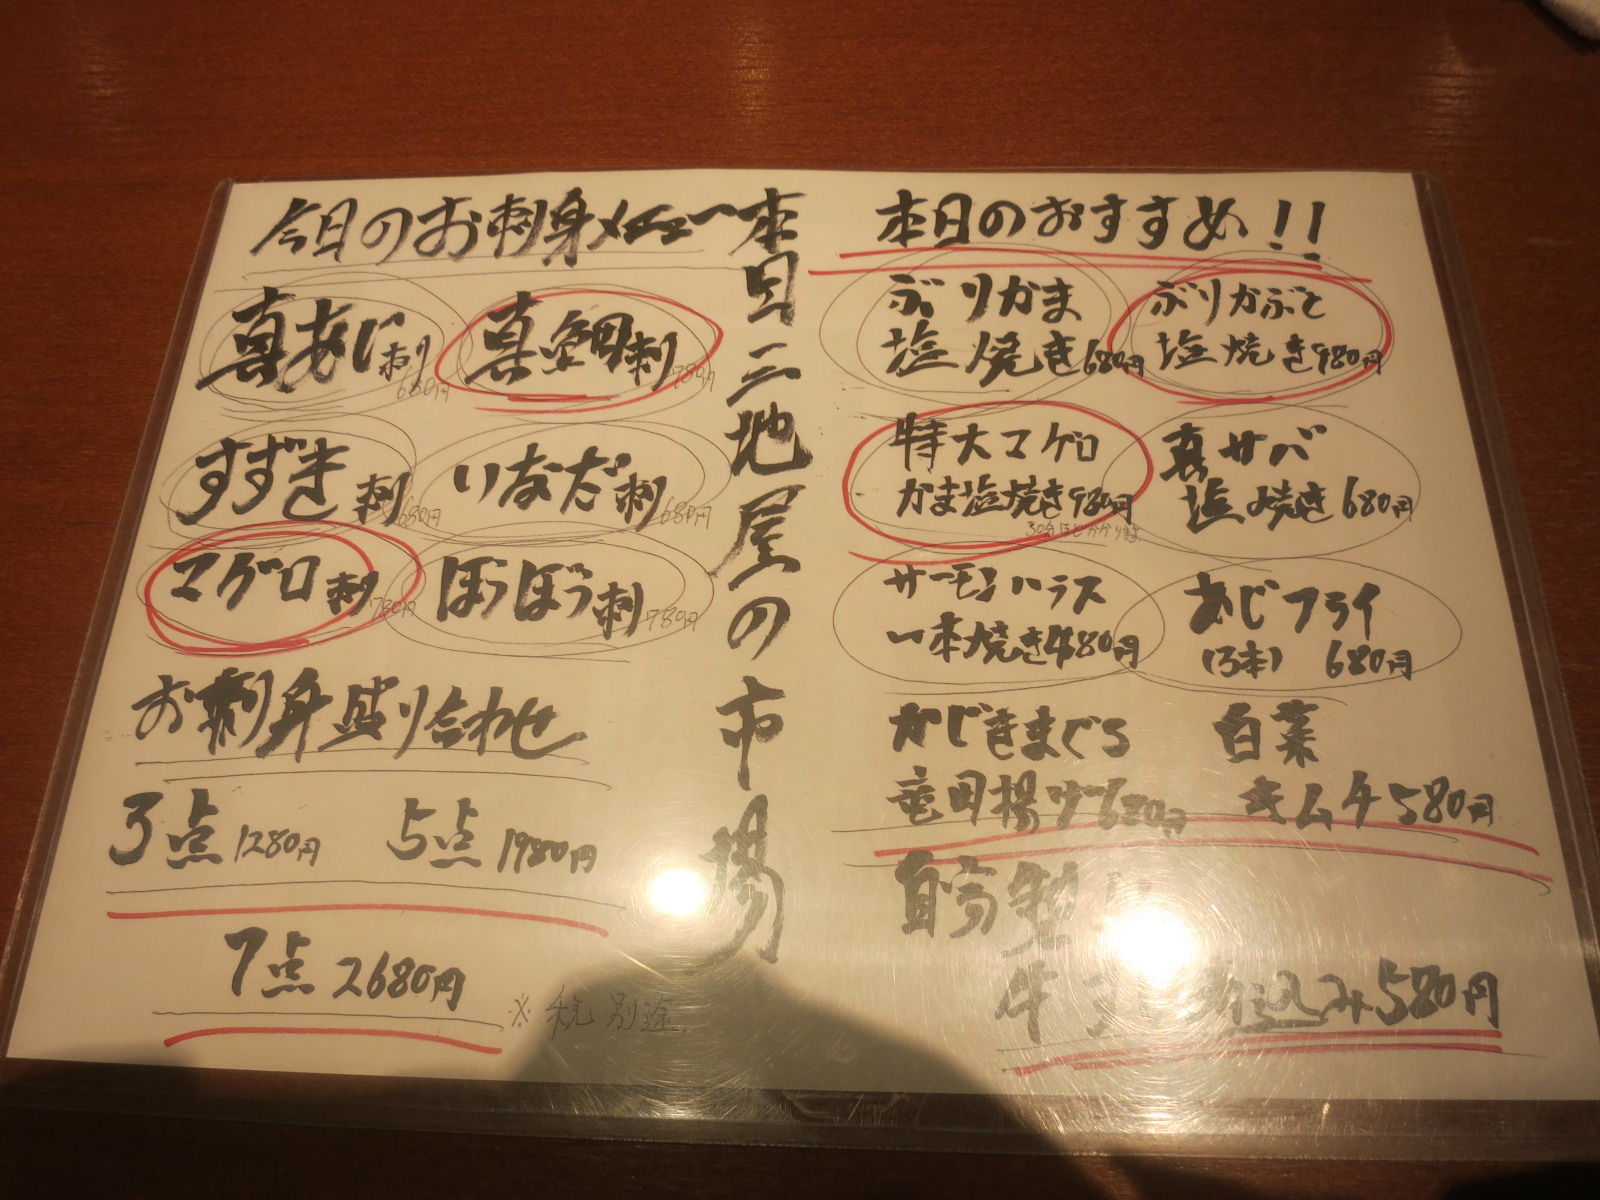 今日のお刺身メニュー
真あじ刺 680円
真鯛刺 780円
すずき刺 680円
いなだ刺 680円
マグロ刺 780円
ほうぼう刺 780円
お刺身盛り合わせ
3点 1280円
5点 1980円
7点 2680円
※税別途
本日三地屋の市場
本日のおすすめ!!
ぶりかま
塩焼き 680円
ぶりかぶと
塩焼き 980円
特大マグロ
かま塩焼き 980円
30分ほどかかります
真サバ
塩焼き 680円
サーモンハラス
一本焼き 480円
あじフライ
(3本) 680円
かじきまぐろ
竜田揚げ 680円
白菜
キムチ 580円
自家製
牛すじ煮込み 580円